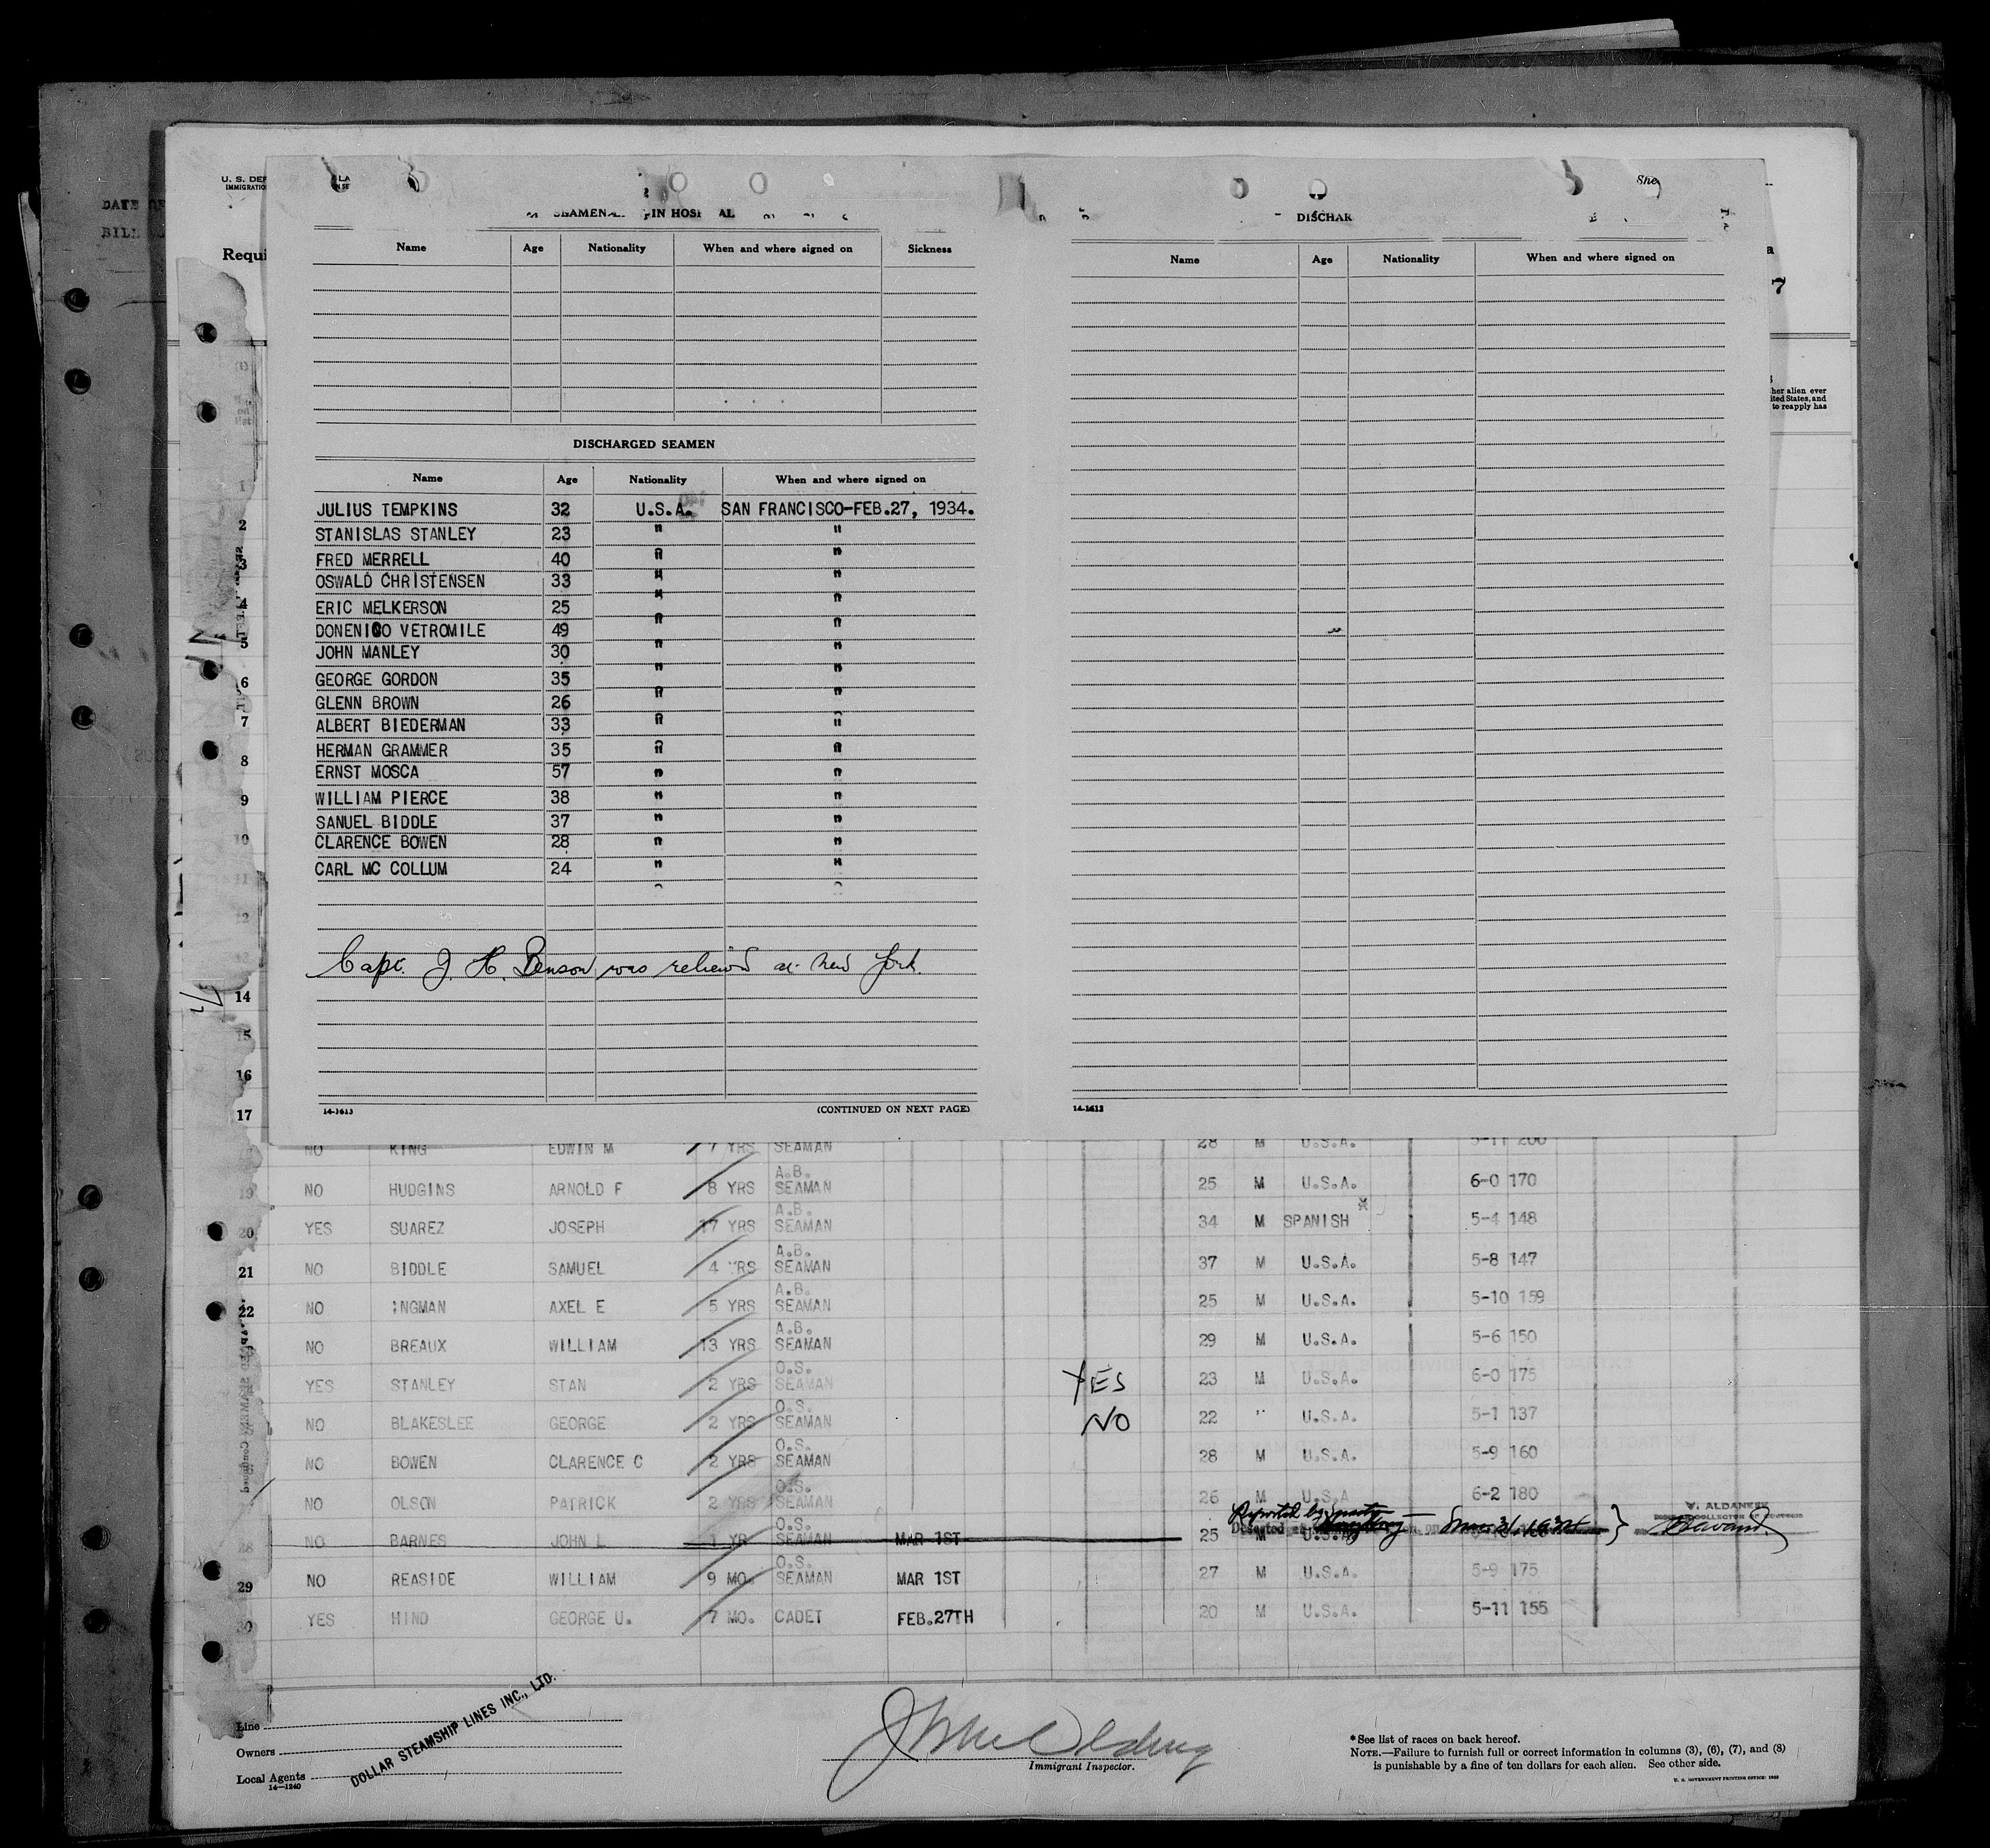 DATE
BILL
U. S. DEP
IMMIGRATIO
Requi
IN HOSPITAL
Name Age Nationality When and where signed on Sickness
DISCHARGED SEAMEN
Name Age Nationality When and where signed on
JULIUS TEMPKINS 32 U.S.A. SAN FRANCISCO-FEB.27, 1934.
STANISLAS STANLEY 23 " "
FRED MERRELL 40 " "
OSWALD CHRISTENSEN 33 " "
ERIC MELKERSON 25 " "
DONENICO VETROMILE 49 " "
JOHN MANLEY 30 " "
GEORGE GORDON 35 " "
GLENN BROWN 26 " "
ALBERT BIEDERMAN 33 " "
HERMAN GRAMMER 35 " "
ERNST MOSCA 57 " "
WILLIAM PIERCE 38 " "
SANUEL BIDDLE 37 " "
CLARENCE BOWEN 28 " "
CARL MC COLLUM 24 " "
Capt. J. H. Benson was relieved at New York
14-1613 (CONTINUED ON NEXT PAGE)
DISCHAR
Name Age Nationality When and where signed on
14-1613
her alien ever
ited States, and
to reapply has
1
2
3
4
5
6
7
8
9
10
11
12
13
14
15
16
17
NO KING EDWIN M 7 YRS SEAMAN 28 M U.S.A. 5-11 200
19 NO HUDGINS ARNOLD F 8 YRS A.B. SEAMAN 25 M U.S.A. 6-0 170
20 YES SUAREZ JOSEPH 17 YRS A.B. SEAMAN 34 M SPANISH 5-4 148
21 NO BIDDLE SAMUEL 4 YRS A.B. SEAMAN 37 M U.S.A. 5-8 147
22 NO INGMAN AXEL E 5 YRS A.B. SEAMAN 25 M U.S.A. 5-10 159
NO BREAUX WILLIAM 13 YRS A.B. SEAMAN 29 M U.S.A. 5-6 150
YES STANLEY STAN 2 YRS O.S. SEAMAN YES 23 M U.S.A. 6-0 175
NO BLAKESLEE GEORGE 2 YRS O.S. SEAMAN NO 22 " U.S.A. 5-1 137
NO BOWEN CLARENCE C 2 YRS O.S. SEAMAN 28 M U.S.A. 5-9 160
NO OLSON PATRICK 2 YRS O.S. SEAMAN 26 M U.S.A 6-2 180
Reported by
28 NO BARNES JOHN L 1 YR O.S. SEAMAN MAR 1ST 25 M U.S.A.
29 NO REASIDE WILLIAM 9 MO. O.S. SEAMAN MAR 1ST 27 M U.S.A. 5-9 175
30 YES HIND GEORGE U. 7 MO. CADET FEB.27TH 20 M U.S.A. 5-11 155
Line
Owners
Local Agents
14-1240
DOLLAR STEAMSHIP LINES INC., LTD.
Immigrant Inspector.
*See list of races on back hereof.
NOTE.—Failure to furnish full or correct information in columns (3), (6), (7), and (8)
is punishable by a fine of ten dollars for each alien. See other side.
U. S. GOVERNMENT PRINTING OFFICE: